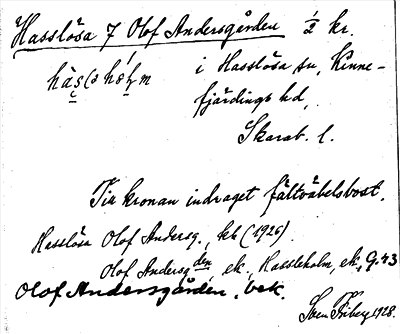 Hasslösa 7 Olof Andersgården ½ kr.
i Hasslösa sn, Kinne-
fjärdings hd,
Skarab. l.
Till kronan indraget fältväbelsbost.
Hasslösa Olof Andersg., kk (1926)
Olof Andersgden, ek., Hassleholm, ek, G. 43
Olof Andersgården, bek.
Sven Friberg 1928.